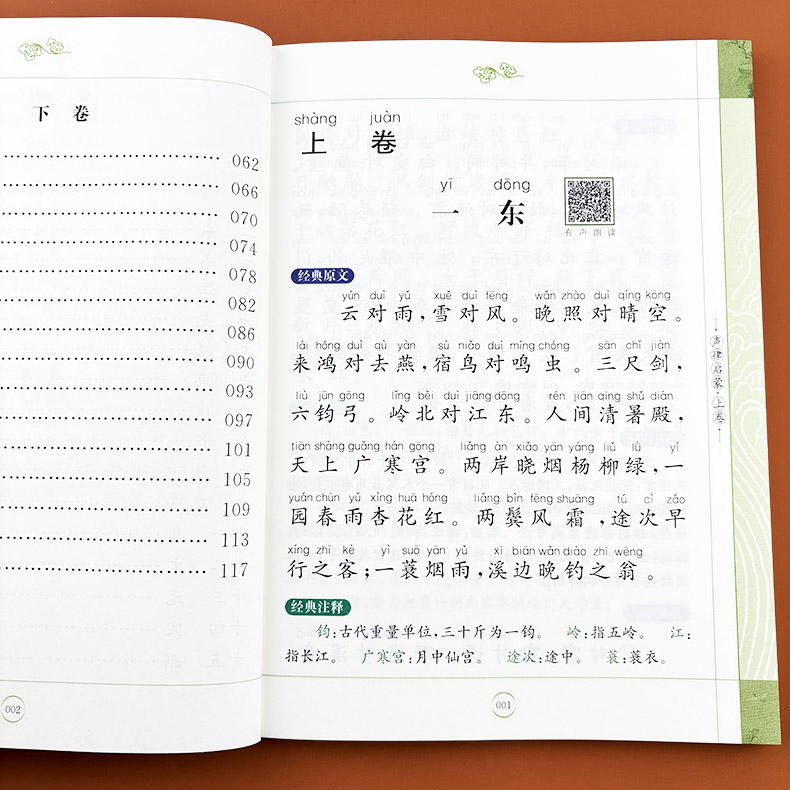 下卷
062
066
070
074
078
082
086
090
093
097
101
105
109
113
117
002
shàng juàn
上 卷
yī dōng
一 东
有声朗读
经典原文
yún duì yǔ xuě duì fēng wǎn zhào duì qíng kōng
云对雨，雪对风。晚照对晴空。
lái hóng duì qù yàn sù niǎo duì míng chóng sān chǐ jiàn
来鸿对去燕，宿鸟对鸣虫。三尺剑，
liù jūn gōng lǐng běi duì jiāng dōng rén jiān qīng shǔ diàn
六钧弓。岭北对江东。人间清暑殿，
tiān shàng guǎng hán gōng liǎng àn xiǎo yān yáng liǔ lǜ yì
天上广寒宫。两岸晓烟杨柳绿，一
yuán chūn yǔ xìng huā hóng liǎng bìn fēng shuāng tú cì zǎo
园春雨杏花红。两鬓风霜，途次早
xíng zhī kè yì suō yān yǔ xī biān wǎn diào zhī wēng
行之客；一蓑烟雨，溪边晚钓之翁。
经典注释
钧：古代重量单位，三十斤为一钧。 岭：指五岭。 江：
指长江。 广寒宫：月中仙宫。 途次：途中。 蓑：蓑衣。
001
声律启蒙·上卷